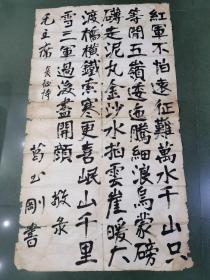 紅軍不怕遠征難萬水千山只
等閒五嶺逶迤騰細浪烏蒙磅
礴走泥丸金沙水拍雲崖暖大
渡橋橫鐵索寒更喜岷山千里
雪三軍過後盡開顏 敬录
毛主席 長征诗 葛玉剛書